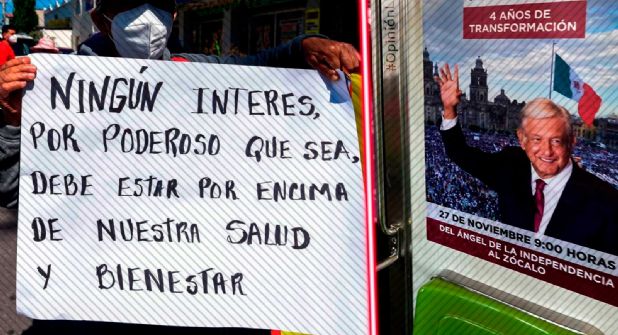 NINGÚN INTERES,
POR PODEROSO QUE SEA,
DEBE ESTAR POR ENCIMA
DE NUESTRA SALUD
Y BIENESTAR
#Opinión
4 AÑOS DE
TRANSFORMACIÓN
27 DE NOVIEMBRE 9:00 HORAS
DEL ÁNGEL DE LA INDEPENDENCIA
AL ZÓCALO